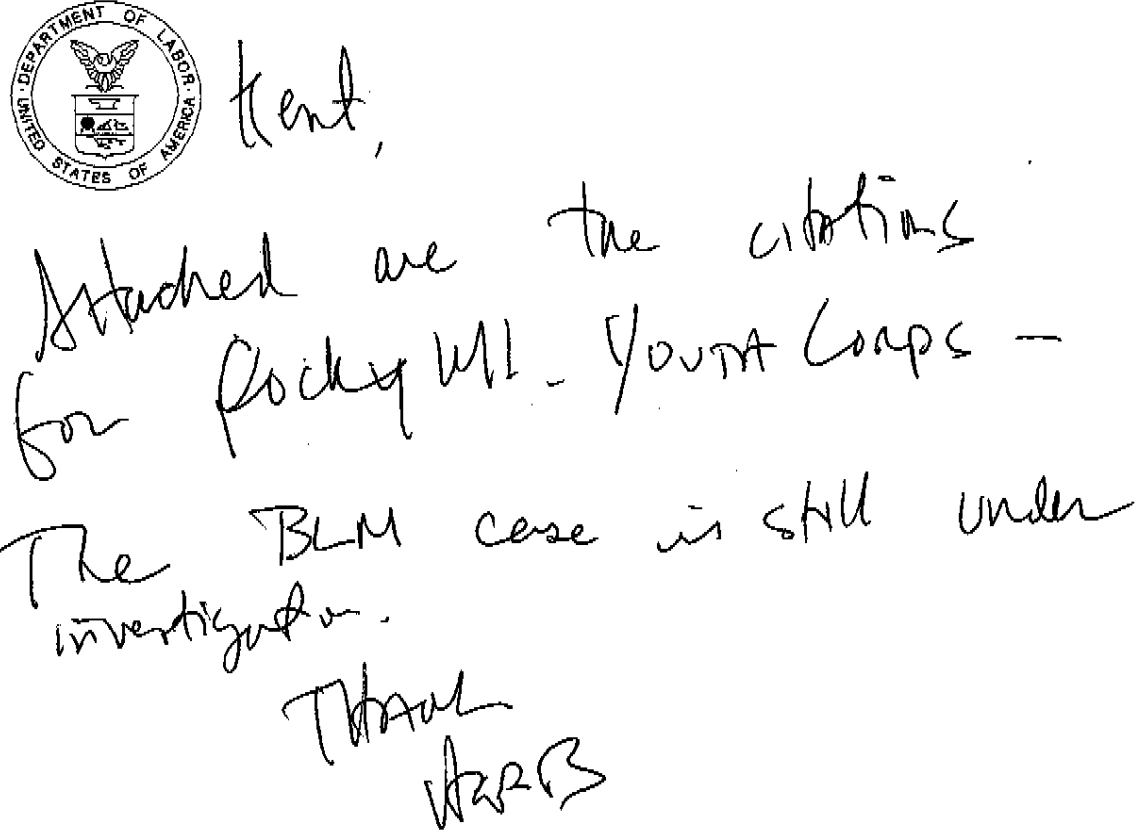 DEPARTMENT OF LABOR
UNITED STATES OF AMERICA
Kent,
Attached are the citations
for Rocky Mt. Youth Corps —
The BLM case is still under
investigation.
Thank
HERB